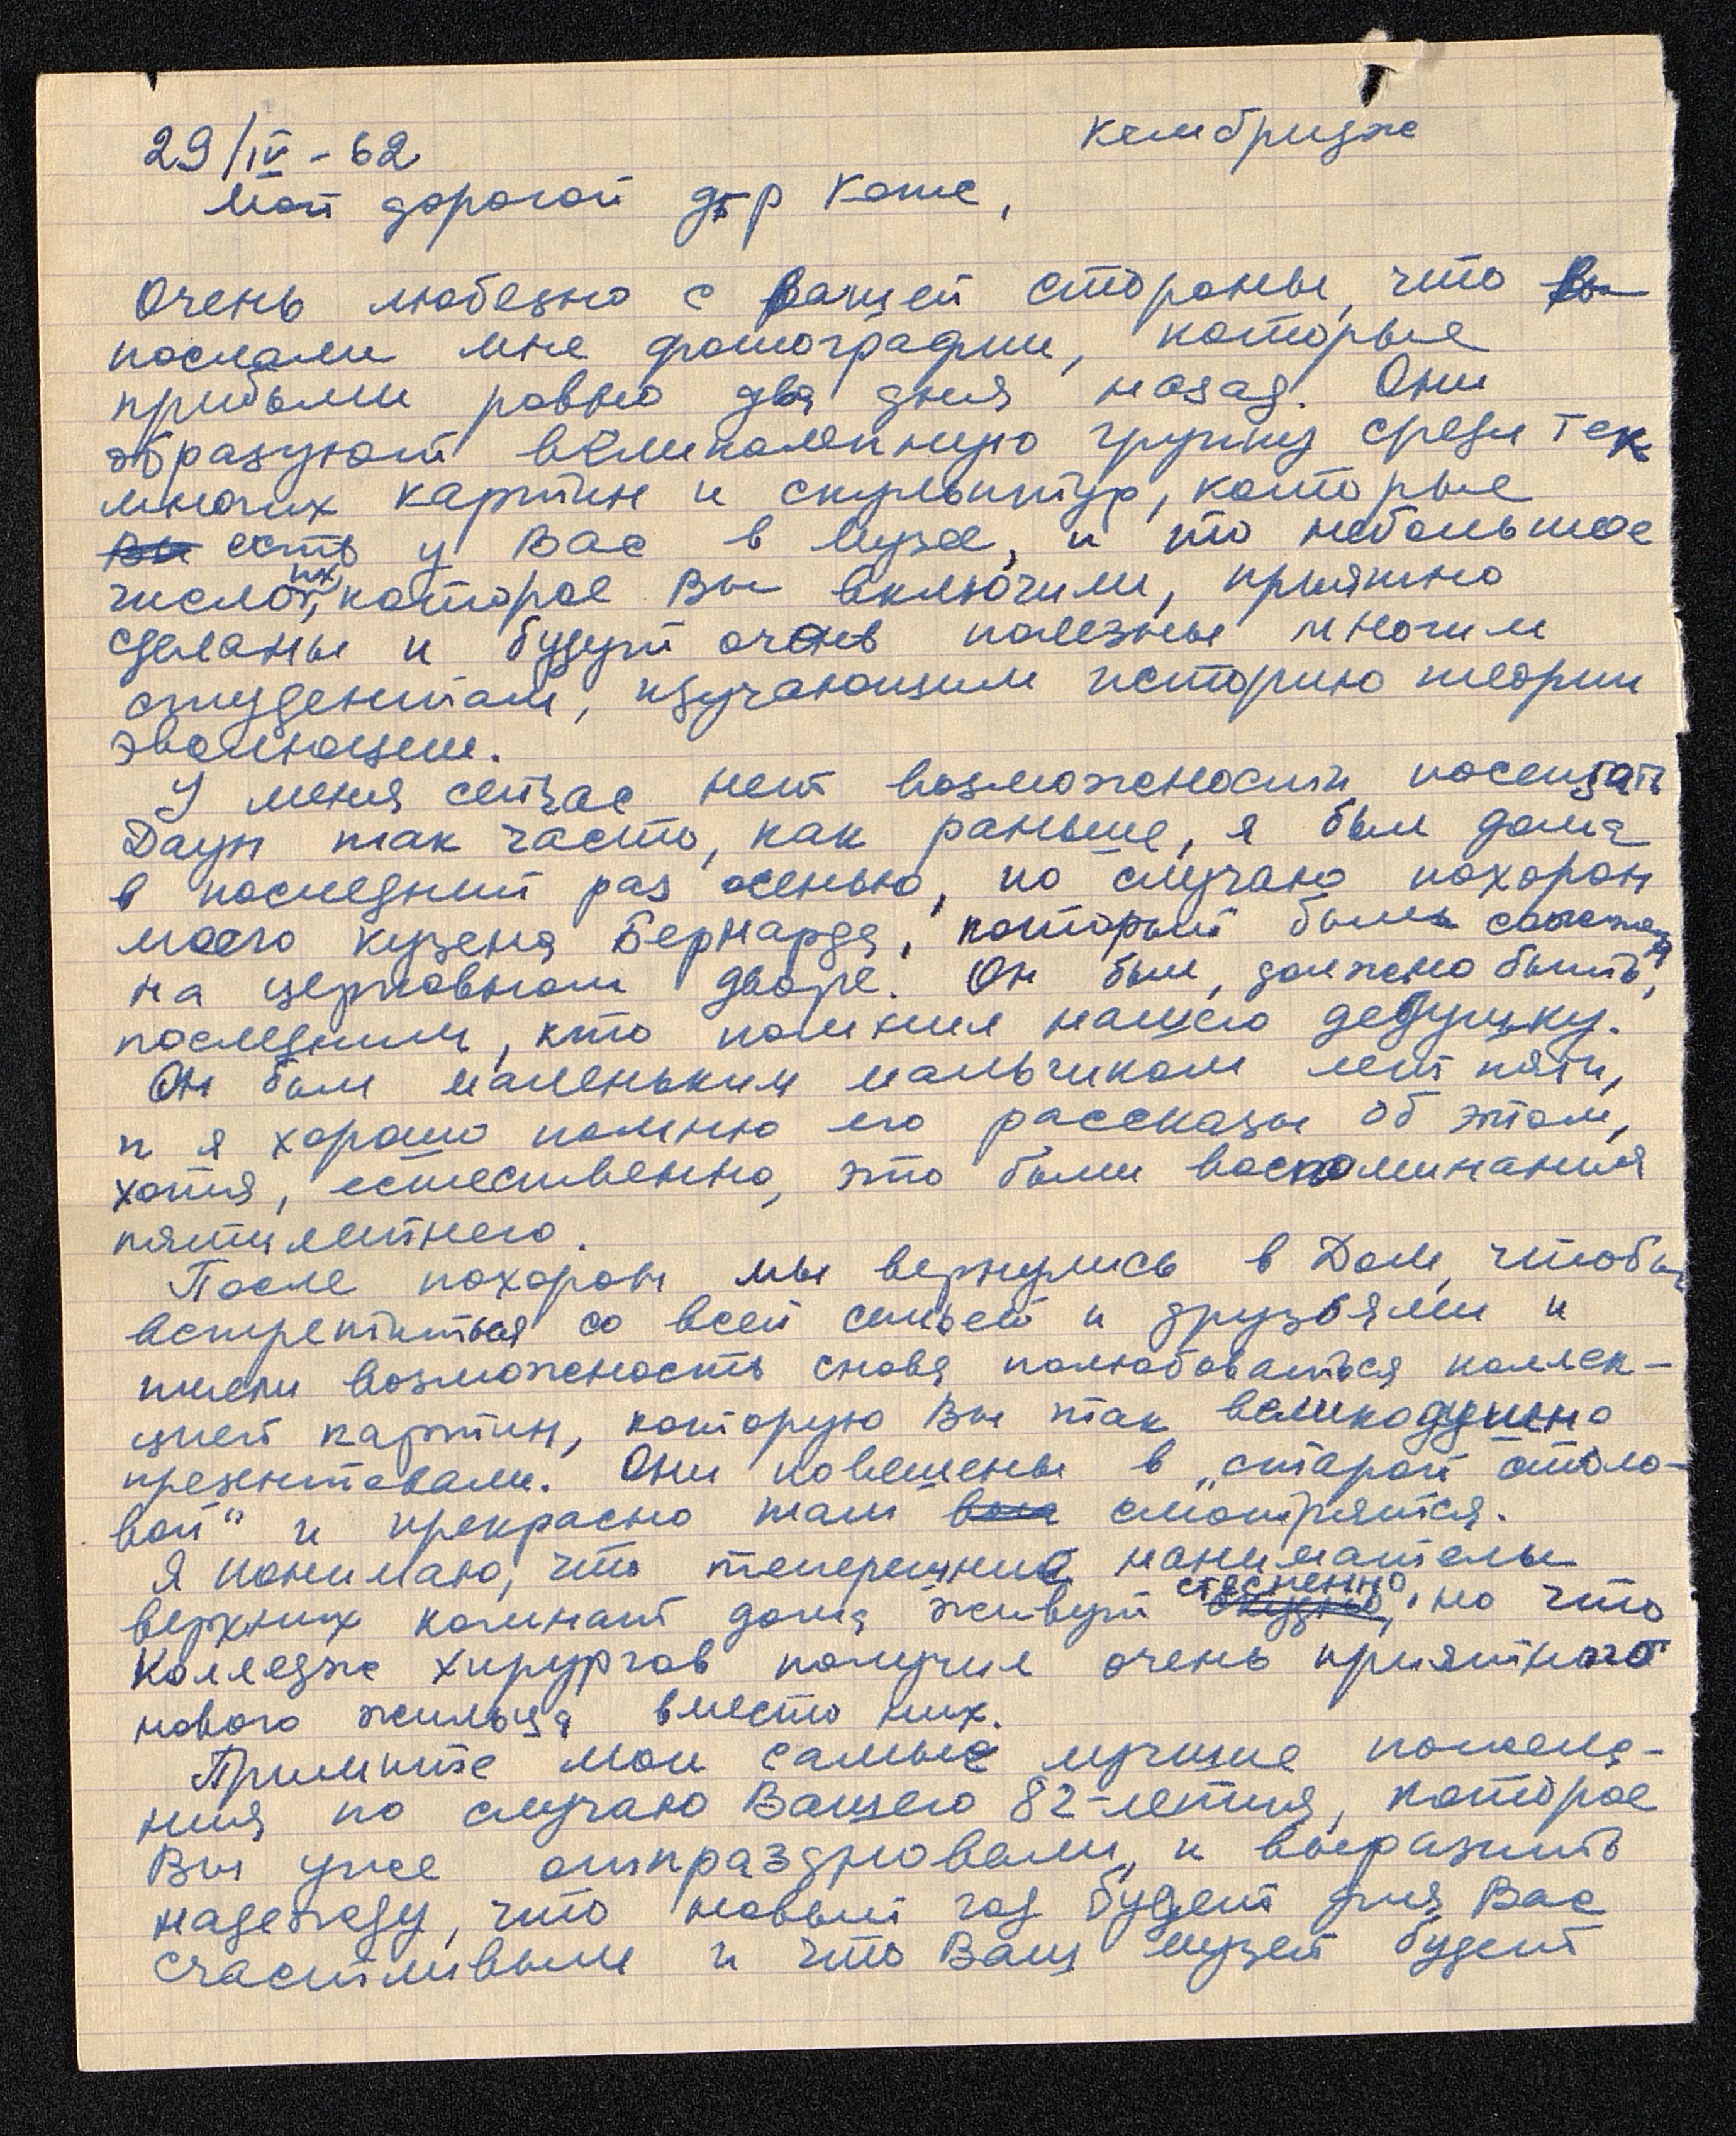 29/IV-62
Кембридж
Мой дорогой д-р Котс,
Очень любезно с Вашей стороны, что Вы
послали мне фотографии, которые
прибыли ровно два дня назад. Они
образуют великолепную группу среди тех
многих картин и скульптур, которые
есть у Вас в музее, и то небольшое
число их, которое Вы включили, приятно
сделаны и будут очень полезны многим
студентам, изучающим историю теории
эволюции.
У меня сейчас нет возможности посещать
Даун так часто, как раньше, я был дома
в последний раз осенью, по случаю похорон
моего кузена Бернарда, который был сожжен
на церковном дворе. Он был, должно быть,
последним, кто помнил нашего дедушку.
Он был маленьким мальчиком лет пяти,
и я хорошо помню его рассказы об этом,
хотя, естественно, это были воспоминания
пятилетнего.
После похорон мы вернулись в Дом, чтобы
встретиться со всей семьей и друзьями и
имели возможность снова полюбоваться коллек-
цией картин, которую Вы так великодушно
презентовали. Они повешены в „старой столо-
вой" и прекрасно там смотрятся.
Я понимаю, что теперешние наниматели
верхних комнат дома живут стесненно, но что
Колледж хирургов получил очень приятного
нового жильца вместо них.
Примите мои самые лучшие пожела-
ния по случаю Вашего 82-летия, которое
Вы уже отпраздновали, и выразить
надежду, что новый год будет для Вас
счастливым и что Ваш музей будет